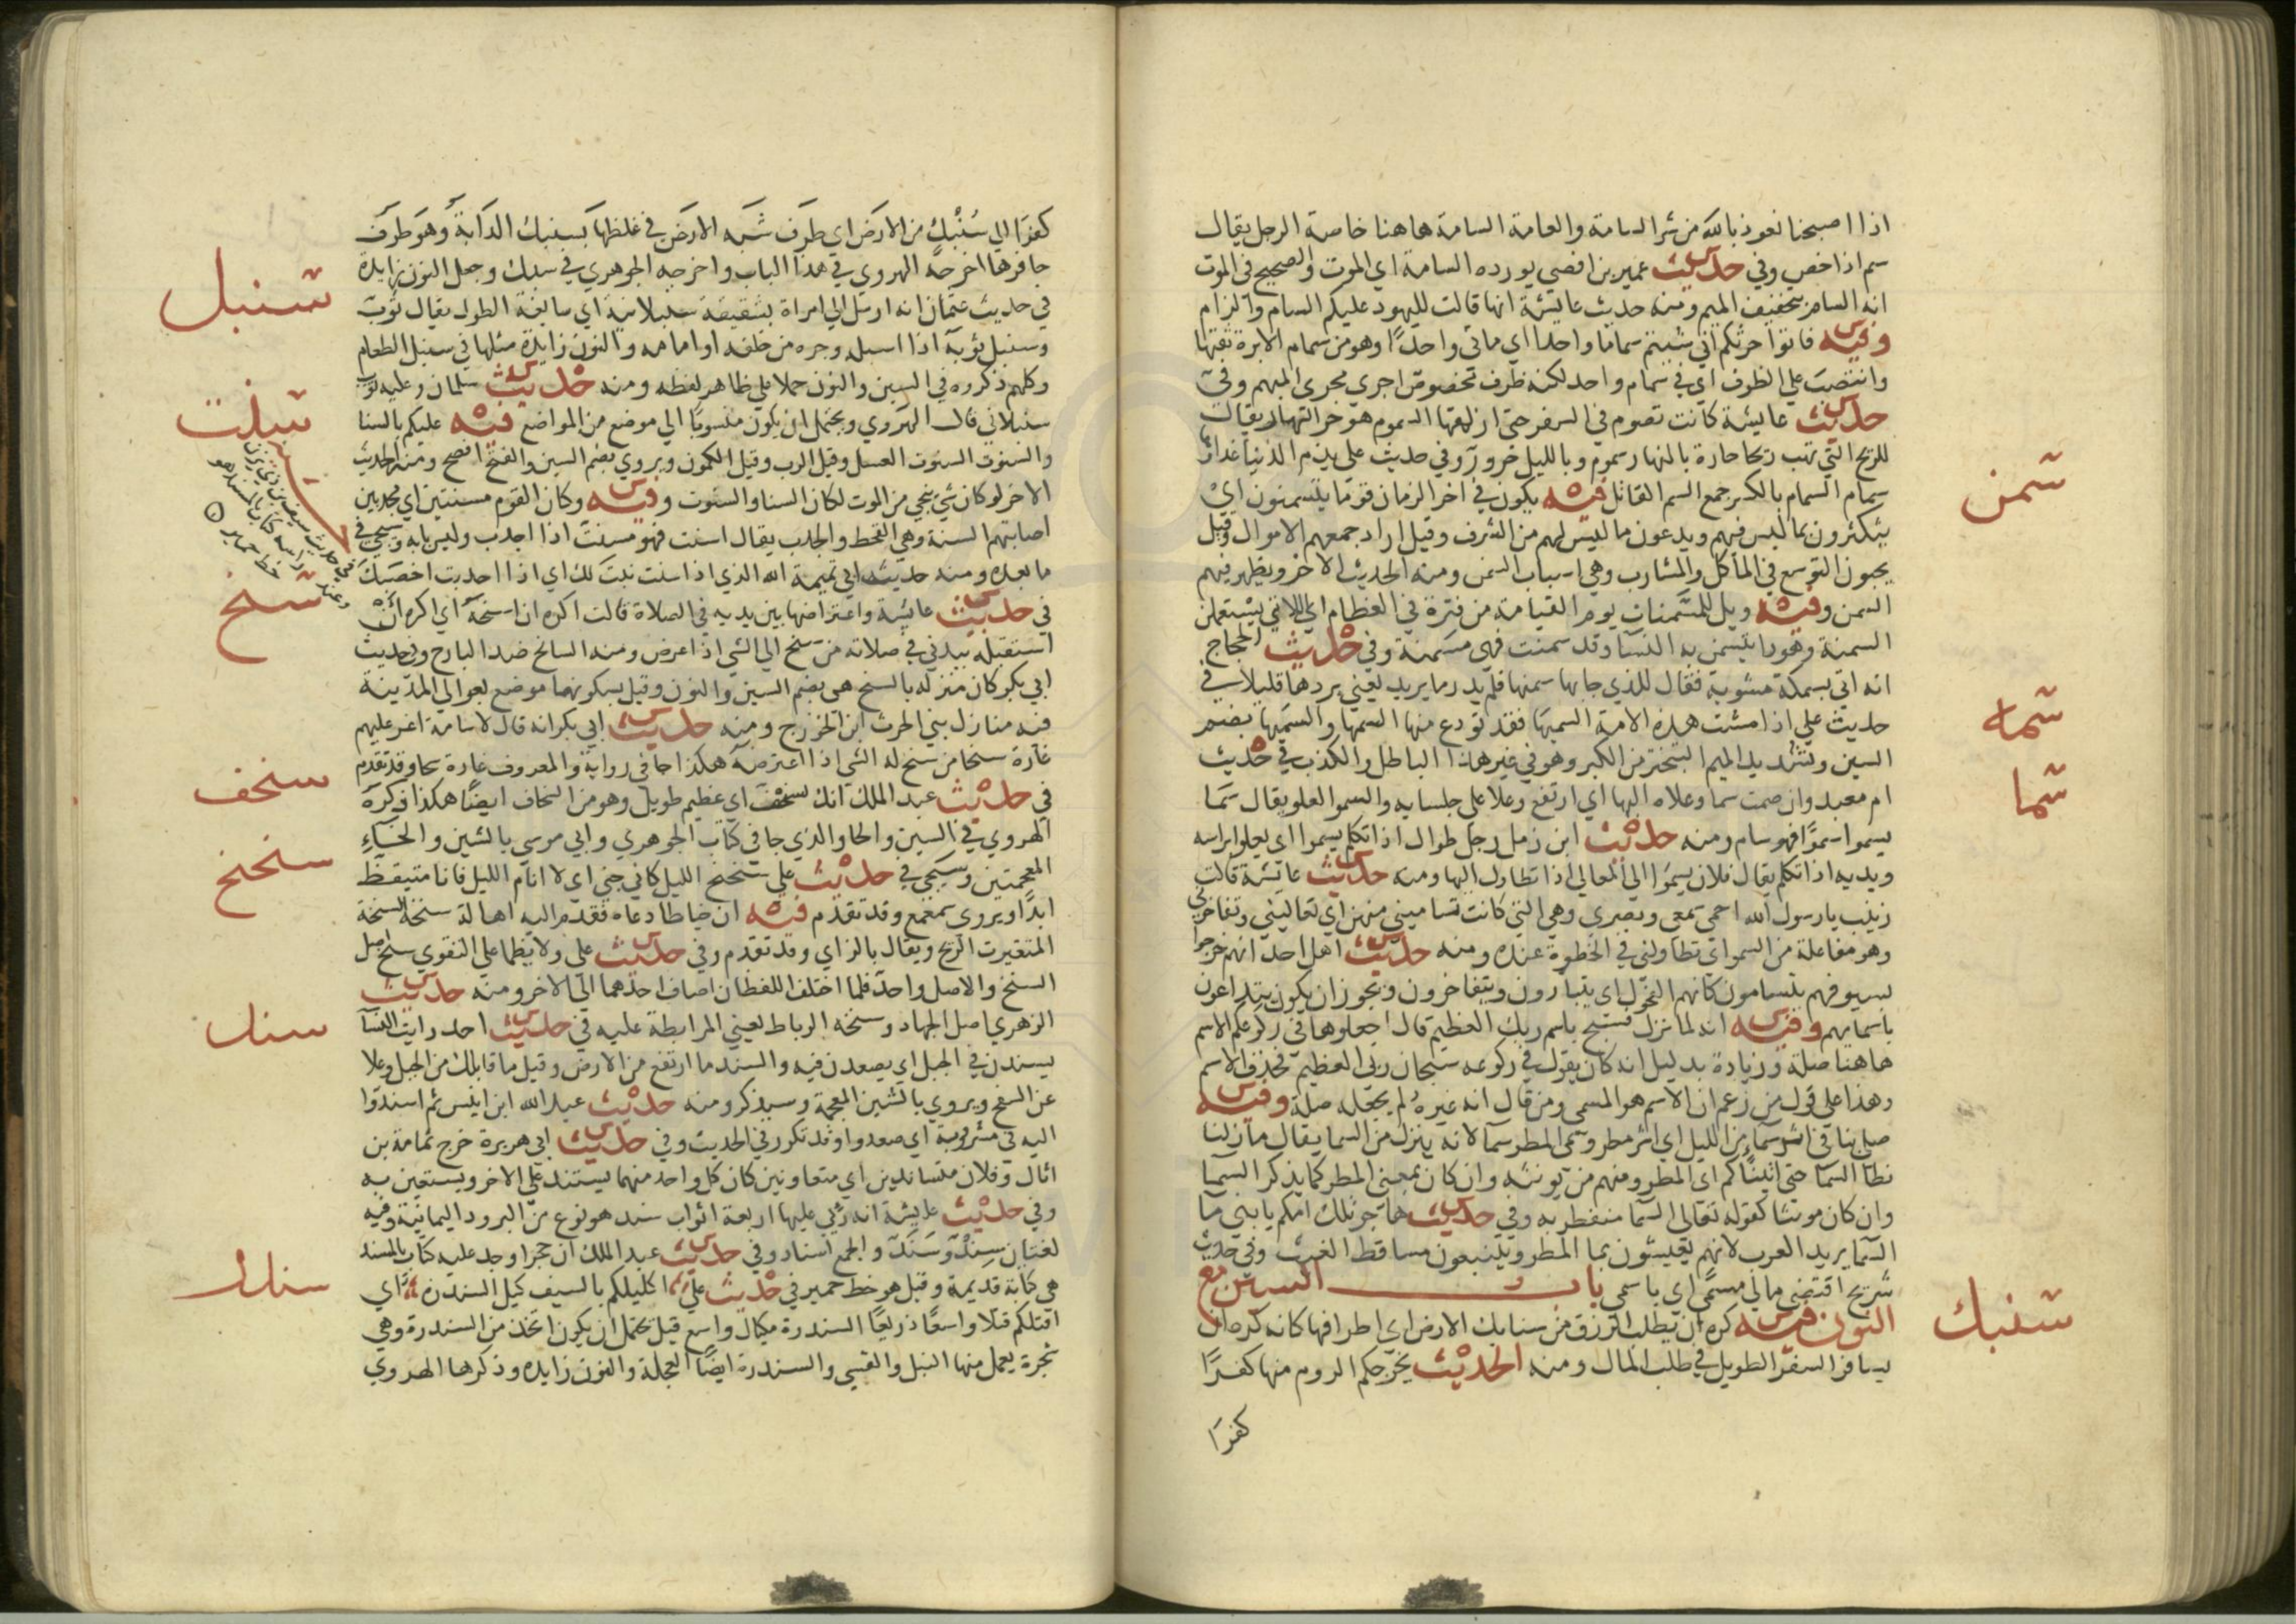 اذا اصبحنا نعوذ بالله من شر السامة والعامة السامة هاهنا خاصة الرجل يقال
سم اذا خص وفي حديث عمير بن افصي يورده السامة اي الموت والصحيح في الموت
انه السام بتخفيف الميم ومنه حديث عايشة انها قالت لليهود عليكم السام والزام
وفيه فاتوا حرثكم اني شيتم سماما واحدا اي ماتي واحدا وهو من سمام الابرة ثقبها
وانتصب علي الظرف اي في سمام واحد لكنه ظرف مخصوص اجري مجري المبهم وفي
حديث عايشة كانت تصوم في السفر حتي ازلقها السموم هو حر النهار يقال
للريح التي تهب ريحا حارة بالنهار سموم وبالليل حرور وفي حديث علي يذم الدنيا غذاوها
سمام السمام بالكسر جمع السم القاتل فيه يكون في اخر الزمان قوم يتسمنون اي
يتكثرون بما ليس فيهم ويدعون ما ليس لهم من الشرف وقيل اراد جمعهم الاموال وقيل
يحبون التوسع في المآكل والمشارب وهي اسباب السمن ومنه الحديث الاخر ويظهر فيهم
السمن وفيه ويل للمسمنات يوم القيامة من فترة في العظام اي اللاتي يستعملن
السمنة وهو دوا يتسمن به النسا وقد سمنت فهي مسمنة وفي حديث الحجاج
انه اتي بسمكة مشوية فقال للذي جا بها سمنها فلم يدر ما يريد يعني بردها قليلا في
حديث علي اذا مشت هذه الامة السميها فقد تودع منها السمها والسميها بضم
السين وتشديد الميم التبختر من الكبر وهو في غير هذا الباطل والكذب في حديث
ام معبد وان صمت سما وعلاه البها اي ارتفع وعلا علي جلسايه والسمو العلو يقال سما
يسموا سموا فهو سام ومنه حديث ابن زمل رجل طوال اذا تكلم يسموا اي يعلوا براسه
ويديه اذا تكلم يقال فلان يسموا الي المعالي اذا تطاول اليها ومنه حديث عايشة قالت
زينب يا رسول الله احمي سمعي وبصري وهي التي كانت تساميني منهن اي تعاليني وتفاخرني
وهو مفاعلة من السمو اي تطاولني في الحظوة عنده ومنه حديث اهل احد انهم خرجوا
بسيوفهم يتسامون كانهم الفحول اي يتبارون ويتفاخرون ويجوز ان يكون يتداعون
باسمايهم وفيه انه لما نزل فسبح باسم ربك العظيم قال اجعلوها في ركوعكم الاسم
هاهنا صلة وزيادة بدليل انه كان يقول في ركوعه سبحان ربي العظيم فحذف الاسم
وهذا علي قول من زعم ان الاسم هو المسمي ومن قال انه غيره لم يجعله صلة وفيه
صلي بنا في اثر سمآء من الليل اي اثر مطر وسمي المطر سما لانه ينزل من السما يقال مازلنا
نطا السما حتي اتيناكم اي المطر ومنهم من يونثه وان كان بمعني المطر كما يذكر السما
وان كان مونثا كقوله تعالي السما منفطر به وفي حديث هاجر تلك امكم يا بني ما
السما يريد العرب لانهم يعيشون بما المطر ويتبعون مساقط الغيث وفي حديث
شريح اقتضي مالي مسمي اي باسمي باب السين مع
النون فيه كره ان يطلب الرزق من سنابك الارض اي اطرافها كانه كره ان
يسافر السفر الطويل في طلب المال ومنه الحديث يخرجكم الروم منها كفرا
كفرا
سمن
سمه
سما
سنبك
كفرا الي سنبك من الارض اي طرف شبه الارض في غلظها بسنبك الدابة وهو طرف
حافرها اخرجه الهروي في هذا الباب واخرجه الجوهري في سبك وجعل النون زايدة
في حديث عثمان انه ارسل الي امراة بشقيقة سنبلانية اي سابغة الطول يقال ثوب
وسنبل ثوبه اذا اسبله وجره من خلفه او امامه والنون زايدة مثلها في سنبل الطعام
وكلهم ذكروه في السين والنون حملا علي ظاهر لفظه ومنه حديث سلمان وعليه ثوب
سنبلاني قال الهروي ويحتمل ان يكون منسوبا الي موضع من المواضع فيه عليكم بالسنا
والسنوت السنوت العسل وقيل الرب وقيل الكمون ويروي بضم السين والفتح افصح ومنه الحديث
الاخر لو كان شي ينجي من الموت لكان السنا والسنوت وفيه وكان القوم مسنتين اي مجدبين
اصابتهم السنة وهي القحط والجدب يقال اسنت فهو مسنت اذا اجدب وليس بابه وسيجي في
ما بعده ومنه حديث ابي تميمة الله الذي اذا اسنت نبت لك اي اذا اجدبت اخصبك
في حديث عايشة واعتراضها بين يديه في الصلاة قالت اكره ان اسنحه اي اكره ان
استقبله ببدني في صلاته من سنح الي الشي اذا عرض ومنه السانح ضد البارح وفي حديث
ابي بكر كان منزله بالسنح هي بضم السين والنون وقيل بسكونها موضع بعوالي المدينة
فيه منازل بني الحرث ابن الخزرج ومنه حديث ابي بكر انه قال لاسامة اغر عليهم
غارة سنحا من سنح له الشي اذا اعترضه هكذا جا في رواية والمعروف غارة سحا وقد تقدم
في حديث عبد الملك انك لسنحف اي عظيم طويل وهو من السنحاف ايضا هكذا ذكره
الهروي في السين والحا والذي جا في كتاب الجوهري وابي موسي بالشين والخاء
المعجمتين وسيجي في حديث علي سنحنح الليل كاني جني اي لا انام الليل فانا متيقظ
ابدا ويروي سمعمع وقد تقدم فيه ان خياطا دعاه فقدم اليه اهالة سنخة السنخة
المتغيرت الريح ويقال بالزاي وقد تقدم وفي حديث علي ولا يظما علي التقوي سنخ اصل
السنخ والاصل واحد فلما اختلف اللفظان اضاف احدهما الي الاخر ومنه حديث
الزهري اصل الجهاد وسنخه الرباط يعني المرابطة عليه في حديث احد رايت النسا
يسندن في الجبل اي يصعدن فيه والسند ما ارتفع من الارض وقيل ما قابلك من الجبل وعلا
عن السفح ويروي بالشين المعجمة وسيذكر ومنه حديث عبد الله ابن انيس ثم اسندوا
اليه في مشربة اي صعدوا وقد تكرر في الحديث وفي حديث ابي هريرة خرج ثمامة بن
اثال وفلان متساندين اي متعاونين كان كل واحد منهما يستند علي الاخر ويستعين به
وفي حديث عايشة انه رئي عليها اربعة اثواب سند هو نوع من البرود اليمانية وفيه
لغتان سند وسند والجمع اسناد وفي حديث عبد الملك ان حجرا وجد عليه كتاب بالمسند
هي كتابة قديمة وقيل هو خط حمير في حديث علي اكليلكم بالسيف كيل السندره اي
اقتلكم قتلا واسعا ذريعا السندرة مكيال واسع قيل يحتمل ان يكون اتخذ من السندرة وهي
شجرة يعمل منها النبل والقسي والسندرة ايضا العجلة والنون زايده وذكرها الهروي
سنبل
سنت
سنح
سنحف
سنحنح
سند
سندر